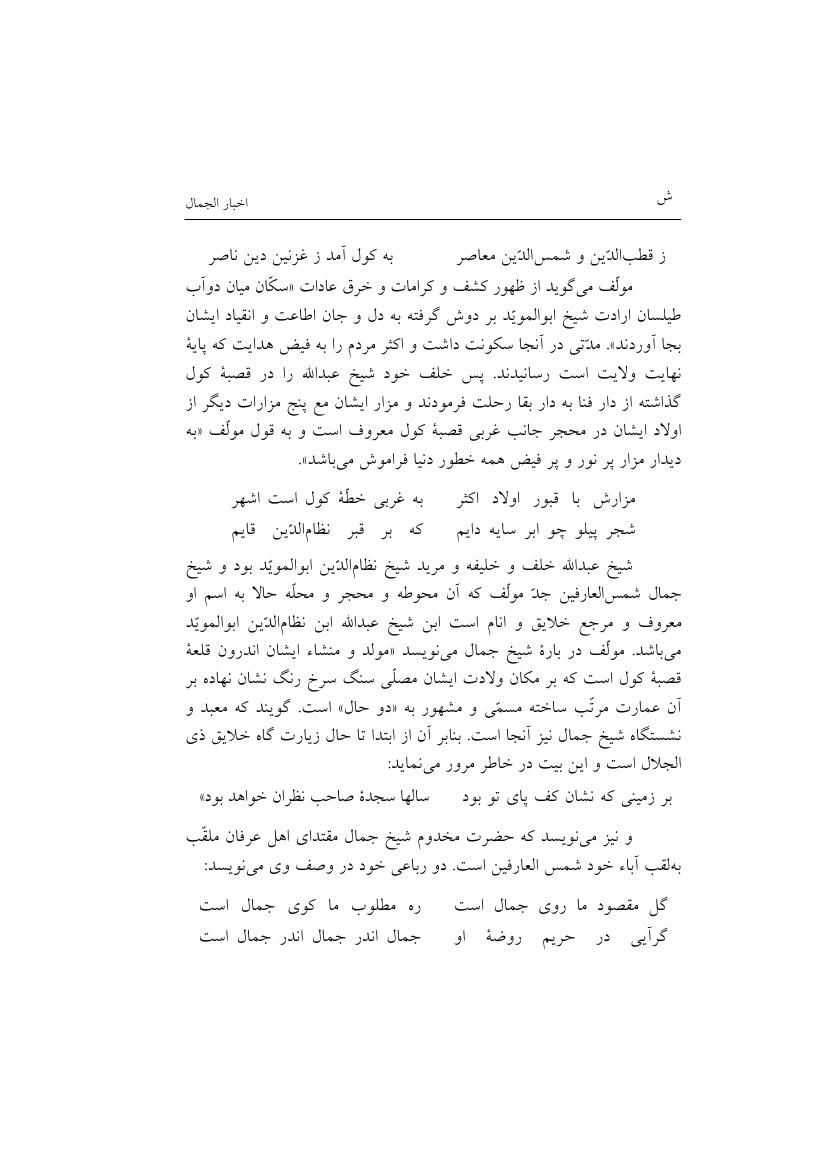 ش
اخبار الجمال
ز قطب‌الدّین و شمس‌الدّین معاصر به کول آمد ز غزنین دین ناصر
مولّف می‌گوید از ظهور کشف و کرامات و خرق عادات «سکّان میان دوآب
طیلسان ارادت شیخ ابوالمویّد بر دوش گرفته به دل و جان اطاعت و انقیاد ایشان
بجا آوردند». مدّتی در آنجا سکونت داشت و اکثر مردم را به فیض هدایت که پایهٔ
نهایت ولایت است رسانیدند. پس خلف خود شیخ عبدالله را در قصبهٔ کول
گذاشته از دار فنا به دار بقا رحلت فرمودند و مزار ایشان مع پنج مزارات دیگر از
اولاد ایشان در محجر جانب غربی قصبهٔ کول معروف است و به قول مولّف «به
دیدار مزار پر نور و پر فیض همه خطور دنیا فراموش می‌باشد».
مزارش با قبور اولاد اکثر به غربی خطّهٔ کول است اشهر
شجر پیلو چو ابر سایه دایم که بر قبر نظام‌الدّین قایم
شیخ عبدالله خلف و خلیفه و مرید شیخ نظام‌الدّین ابوالمویّد بود و شیخ
جمال شمس‌العارفین جدّ مولّف که آن محوطه و محجر و محلّه حالا به اسم او
معروف و مرجع خلایق و انام است ابن شیخ عبدالله ابن نظام‌الدّین ابوالمویّد
می‌باشد. مولّف در بارهٔ شیخ جمال می‌نویسد «مولد و منشاء ایشان اندرون قلعهٔ
قصبهٔ کول است که بر مکان ولادت ایشان مصلّی سنگ سرخ رنگ نشان نهاده بر
آن عمارت مرتّب ساخته مسمّی و مشهور به «دو حال» است. گویند که معبد و
نشستگاه شیخ جمال نیز آنجا است. بنابر آن از ابتدا تا حال زیارت گاه خلایق ذی
الجلال است و این بیت در خاطر مرور می‌نماید:
بر زمینی که نشان کف پای تو بود سالها سجدهٔ صاحب نظران خواهد بود»
و نیز می‌نویسد که حضرت مخدوم شیخ جمال مقتدای اهل عرفان ملقّب
به‌لقب آباء خود شمس العارفین است. دو رباعی خود در وصف وی می‌نویسد:
گل مقصود ما روی جمال است ره مطلوب ما کوی جمال است
گرآیی در حریم روضهٔ او جمال اندر جمال اندر جمال است